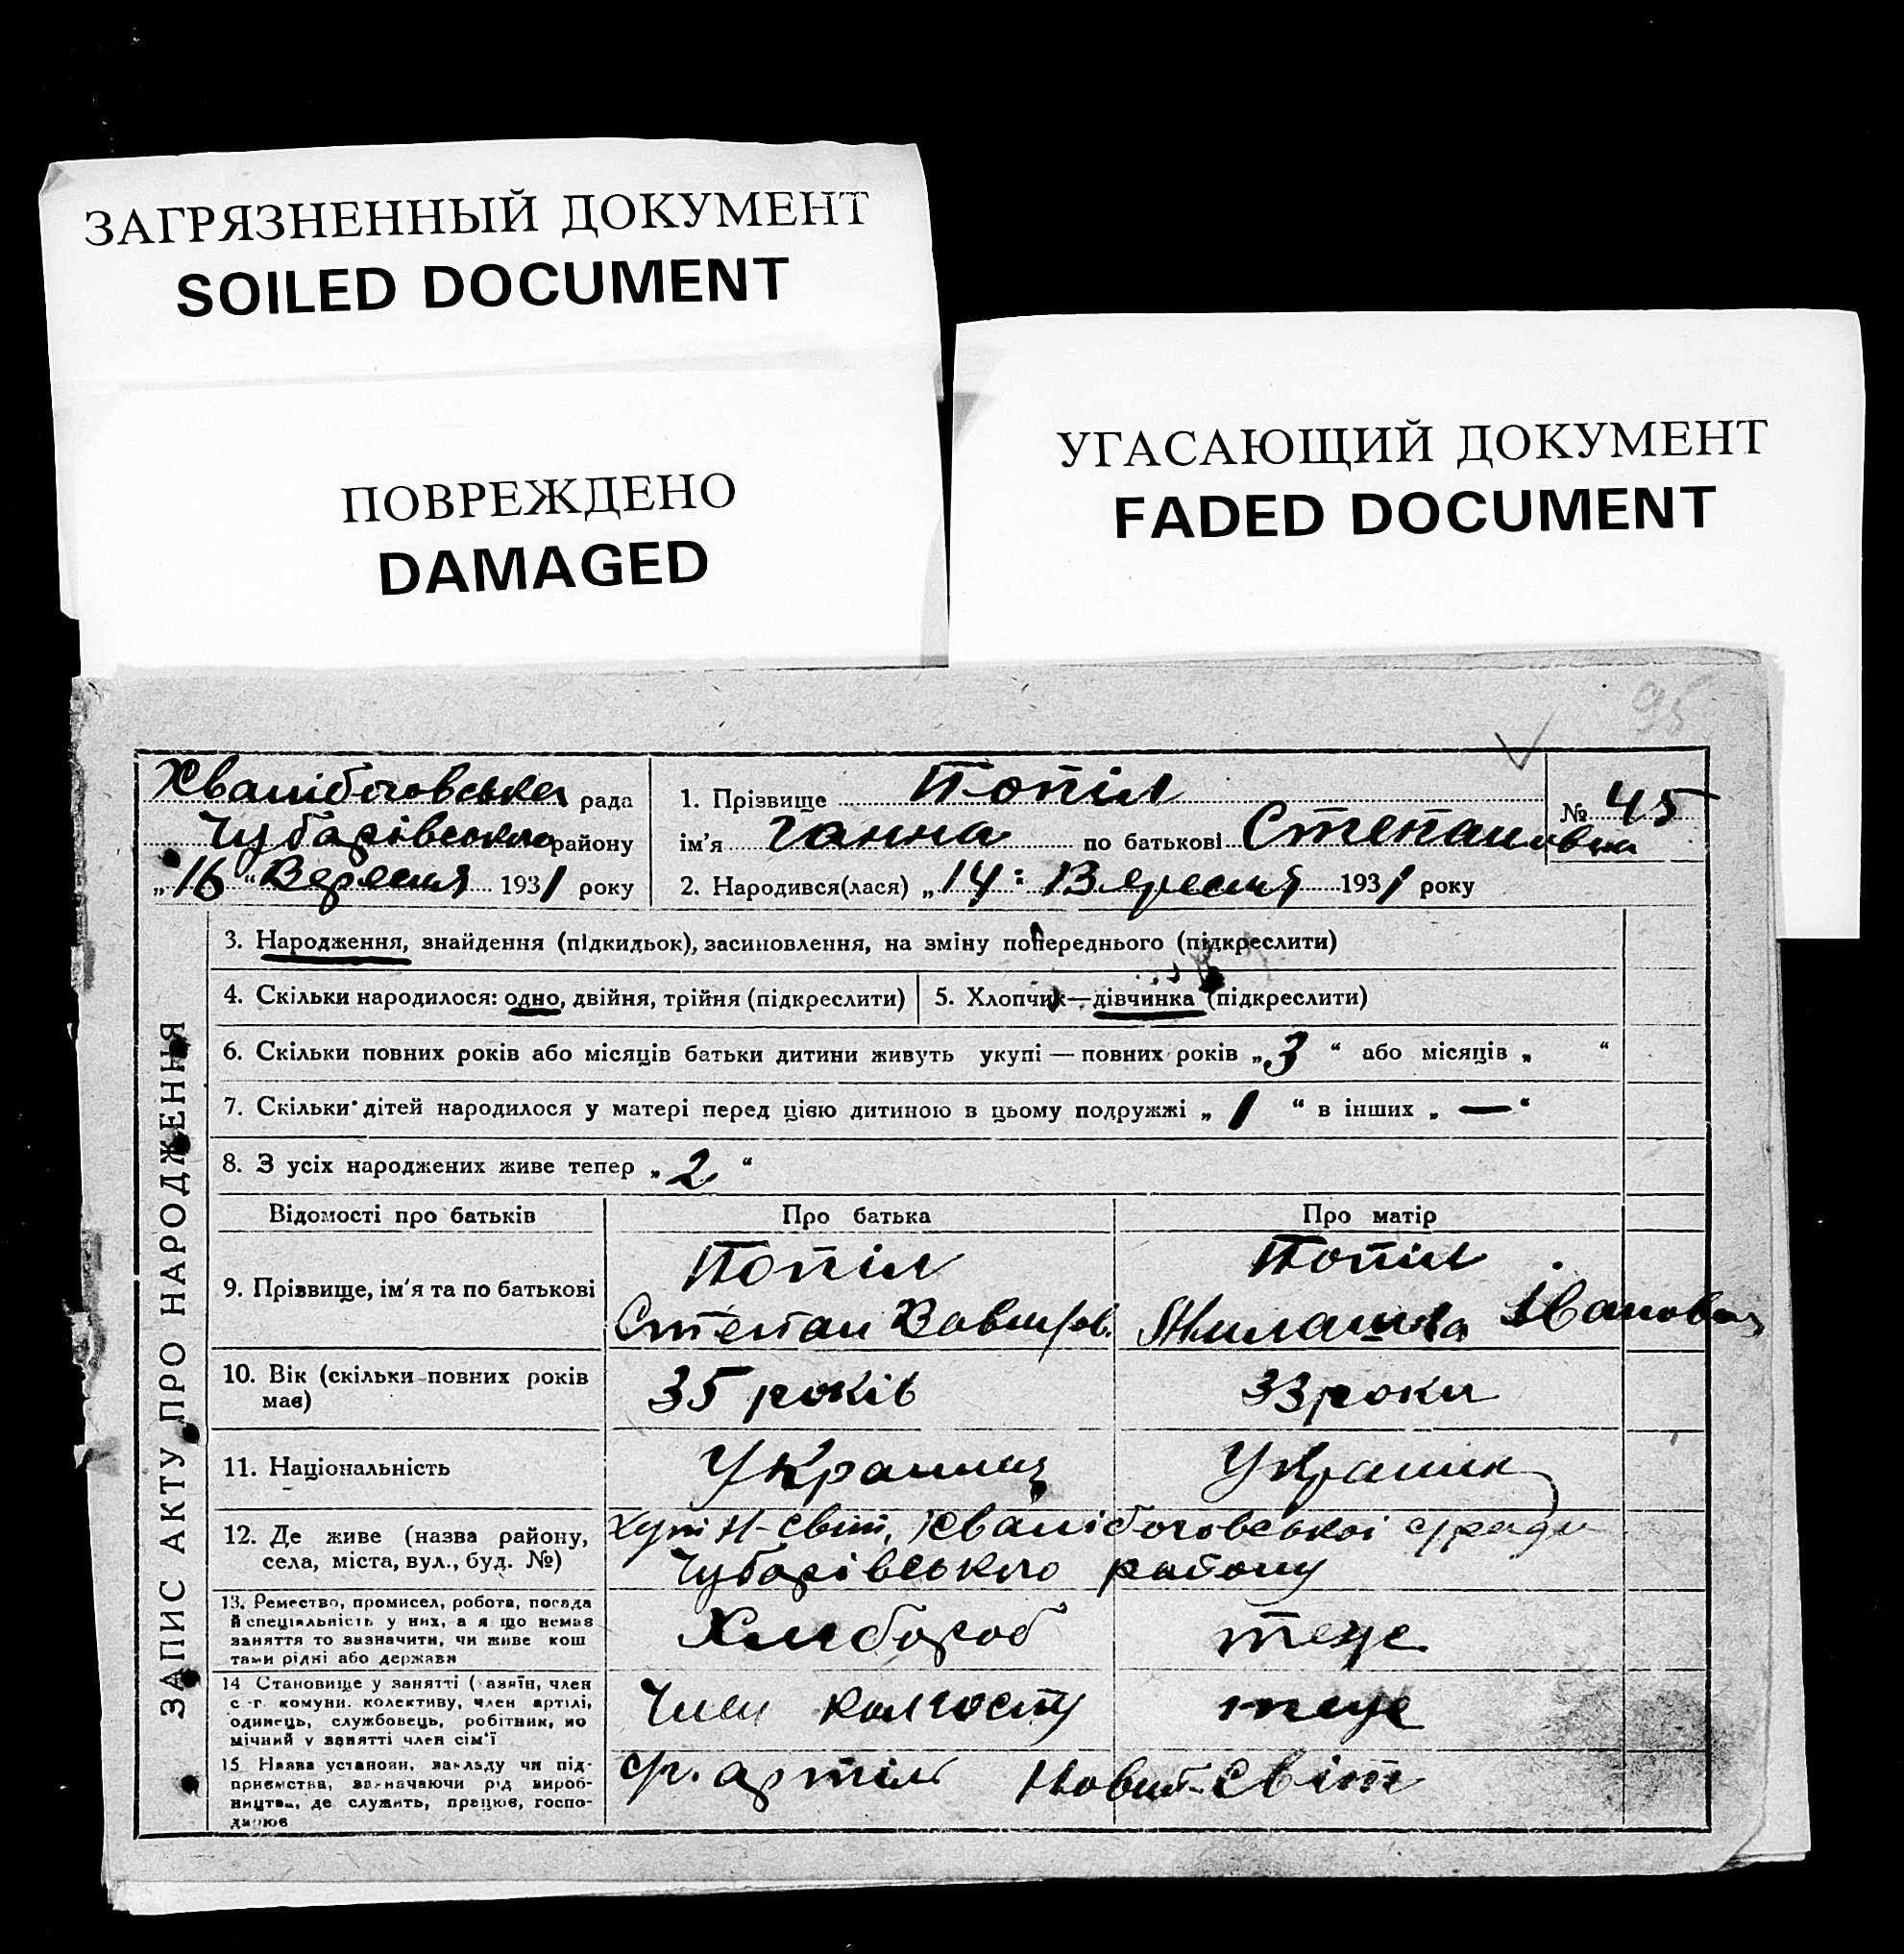 ЗАГРЯЗНЕННЫЙ ДОКУМЕНТ
SOILED DOCUMENT
ПОВРЕЖДЕНО
DAMAGED
УГАСАЮЩИЙ ДОКУМЕНТ
FADED DOCUMENT
95
рада
Чубарівського району
„16“ Вересня 1931 року
1. Прізвище Попіл
№ 45
ім'я Ганна по батькові Степановна
2. Народився(лася) „14: Вересня 1931 року
ЗАПИС АКТУ ПРО НАРОДЖЕННЯ
3. Народження, знайдення (підкидьок), засиновлення, на зміну попереднього (підкреслити)
4. Скільки народилося: одно, двійня, трійня (підкреслити)
5. Хлопчик—дівчинка (підкреслити)
6. Скільки повних років або місяців батьки дитини живуть укупі — повних років „3“ або місяців „ “
7. Скільки дітей народилося у матері перед цією дитиною в цьому подружжі „1“ в інших „—“
8. З усіх народжених живе тепер „2“
Відомості про батьків
Про батька
Про матір
9. Прізвище, ім'я та по батькові
Попіл
Степан
Попіл
Івановна
10. Вік (скільки повних років
має)
35 років
33 роки
11. Національність
Українец
Україн
12. Де живе (назва району,
села, міста, вул., буд. №)
Н-Світ, с/ради
Чубарівського району
13. Ремество, промисел, робота, посада
й спеціяльність у них, а я що немає
заняття то зазначити, чи живе кош
тами рідні або держави
Хлібороб
теже
14 Становище у занятті ( азяїн, член
с -г. комуни. колективу, член артілі,
одинець, службовець, робітник, по
мічний у занятті член сім'ї
Член колгоспу
теже
15 Назва установи, закладу чи під-
приємства, зазначаючи рід вироб-
ництва, де служить, працює, госпо-
дарює
артіль Новий-Світ